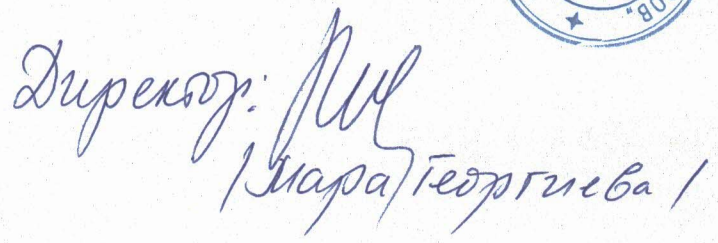 Директор:
/Мара Георгиева/
ОВ"